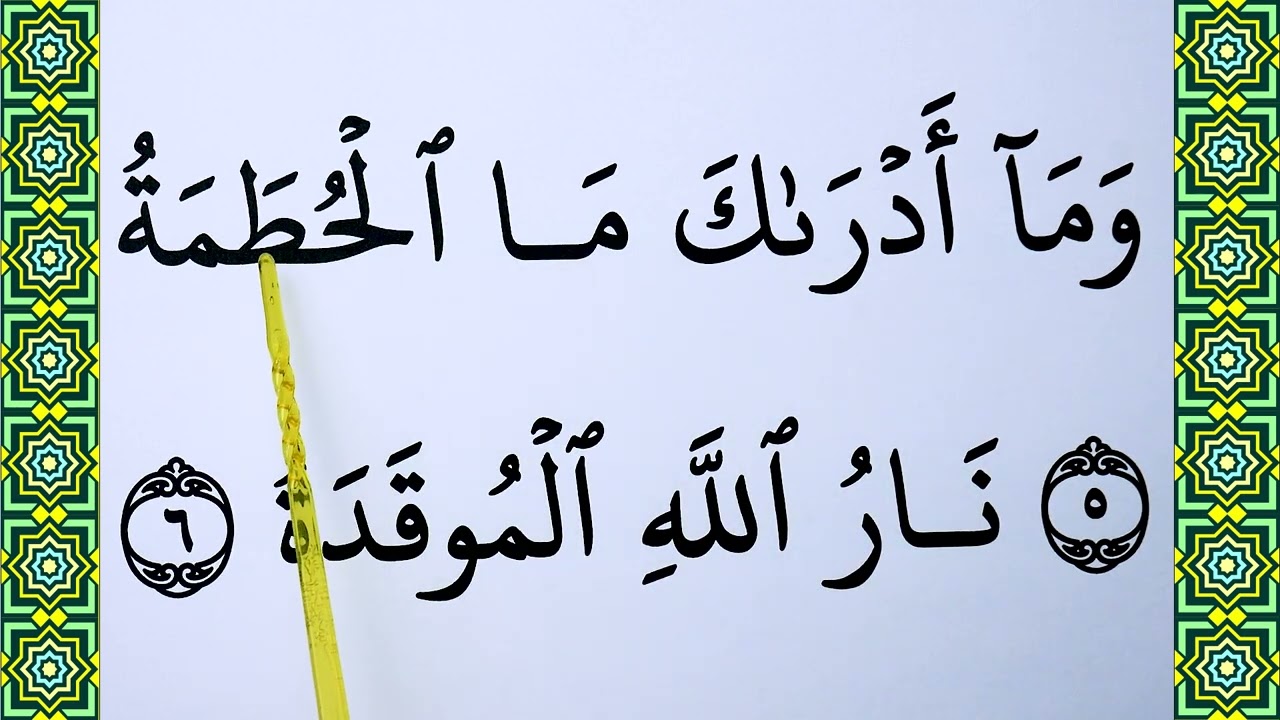 وَمَآ أَدْرَىٰكَ مَا ٱلْحُطَمَةُ
٥ نَارُ ٱللَّهِ ٱلْمُوقَدَةُ ٦